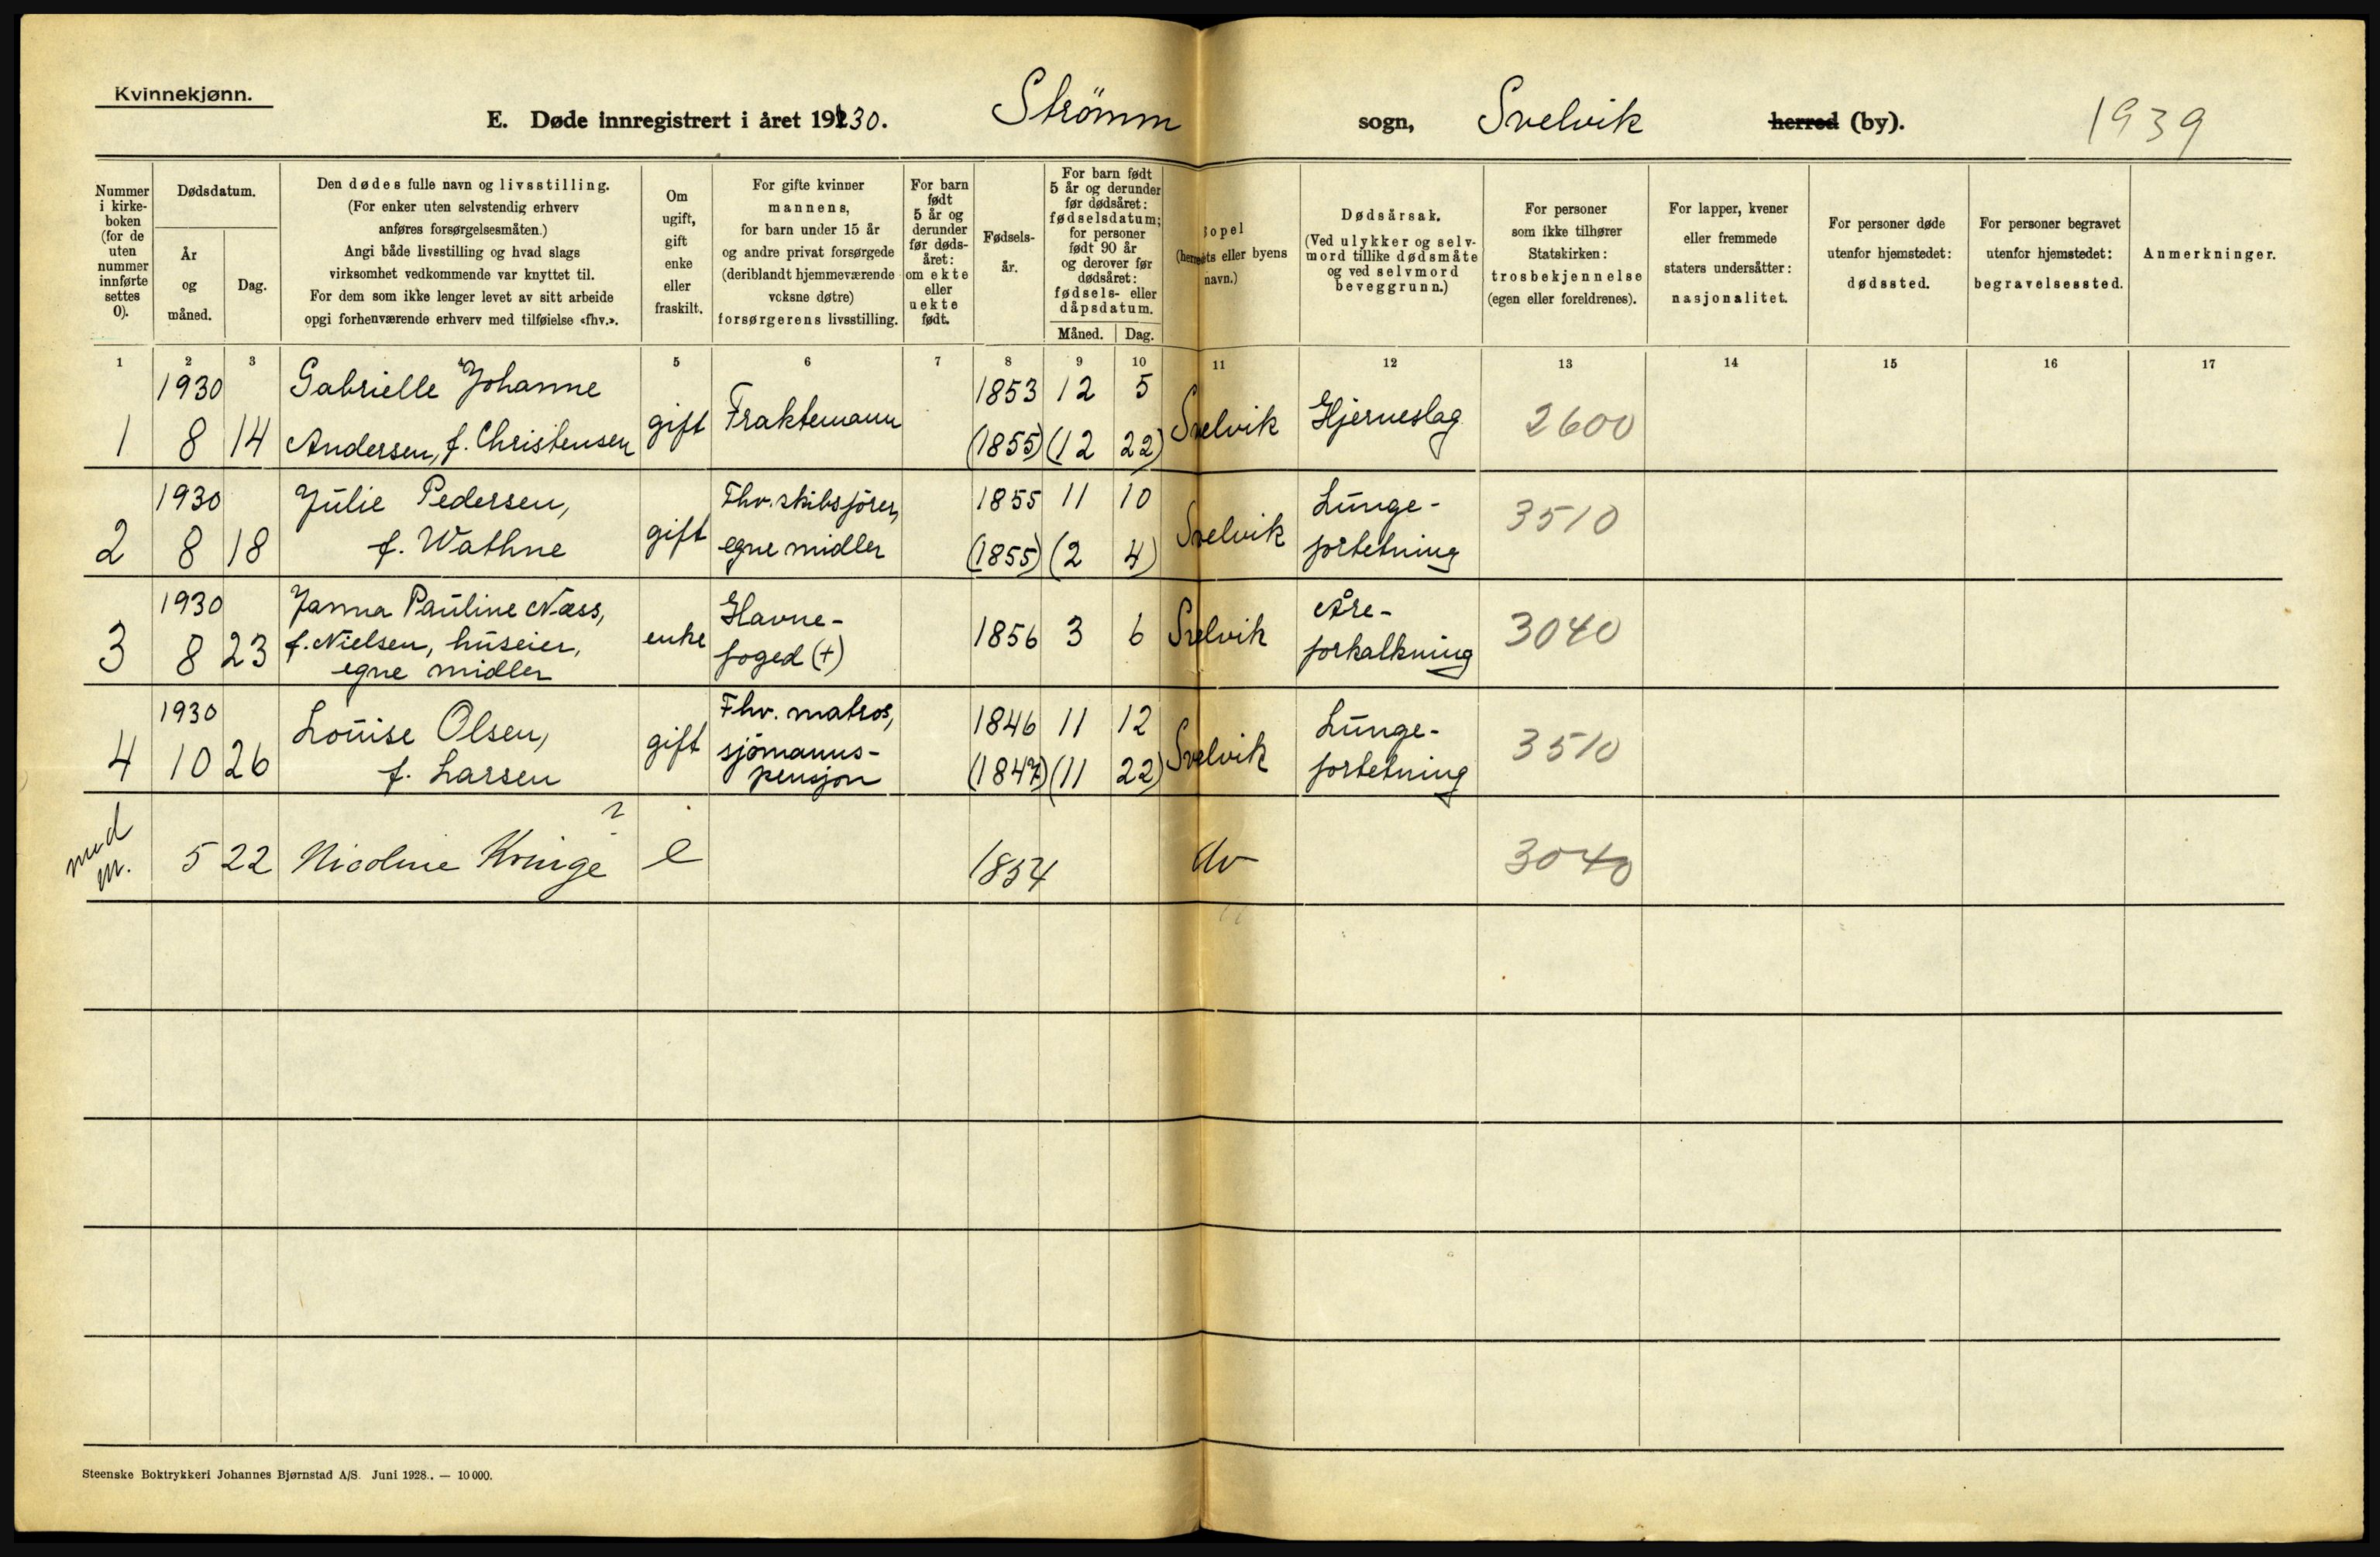 Kvinnekjønn.
E. Døde innregistrert i året 1930. Strömm sogn, Svelvik herred (by). 1939
Nummer i kirke- boken (for de uten nummer innførte settes 0).
Dødsdatum.
År og måned.
Dag.
Den dødes fulle navn og livsstilling.
(For enker uten selvstendig erhverv
anføres forsørgelsesmåten.)
Angi både livsstilling og hvad slags
virksomhet vedkommende var knyttet til.
For dem som ikke lenger levet av sitt arbeide
opgi forhenværende erhverv med tilføielse «fhv.».
Om
ugift,
gift
enke
eller
fraskilt.
For gifte kvinner
mannens,
for barn under 15 år
og andre privat forsørgede
(deriblandt hjemmeværende
voksne døtre)
forsørgerens livsstilling.
For barn
født
5 år og
derunder
før døds-
året:
om ekte
eller
uekte
født.
Fødsels-
år.
For barn født
5 år og derunder
før dødsåret:
fødselsdatum;
for personer
født 90 år
og derover før
dødsåret:
fødsels- eller
dåpsdatum.
Måned. Dag.
Bopel
(herredets eller byens
navn.)
Dødsårsak.
(Ved ulykker og selv-
mord tillike dødsmåte
og ved selvmord
beveggrunn.)
For personer
som ikke tilhører
Statskirken:
trosbekjennelse
(egen eller foreldrenes).
For lapper, kvener
eller fremmede
staters undersåtter:
nasjonalitet.
For personer døde
utenfor hjemstedet:
dødssted.
For personer begravet
utenfor hjemstedet:
begravelsessted.
Anmerkninger.
1 2 3 4 5 6 7 8 9 10 11 12 13 14 15 16 17
1930 Gabrielle Johanne 1853 12 5
1 8 14 Andersen, f. Christensen gift Fraktemann (1855) (12 22) Svelvik Hjerneslag 2600
1930 Julie Pedersen, Fhv. skibsfører, 1855 11 10 Lunge-
2 8 18 f. Wathne gift egne midler (1855) (2 4) Svelvik fortetning 3510
1930 Janna Pauline Næss, Havne- Åre-
3 8 23 f. Nielsen, huseier, enke foged (+) 1856 3 6 Svelvik forkalkning 3040
egne midler
1930 Louise Olsen, Fhv. matros, 1846 11 12 Lunge-
4 10 26 f. Larsen gift sjömanns- (1847) (11 22) Svelvik fortetning 3510
pensjon
?
med
m. 5 22 Nicoline Kringe e 1854 do 3040
Steenske Boktrykkeri Johannes Bjørnstad A/S. Juni 1928.. — 10 000.